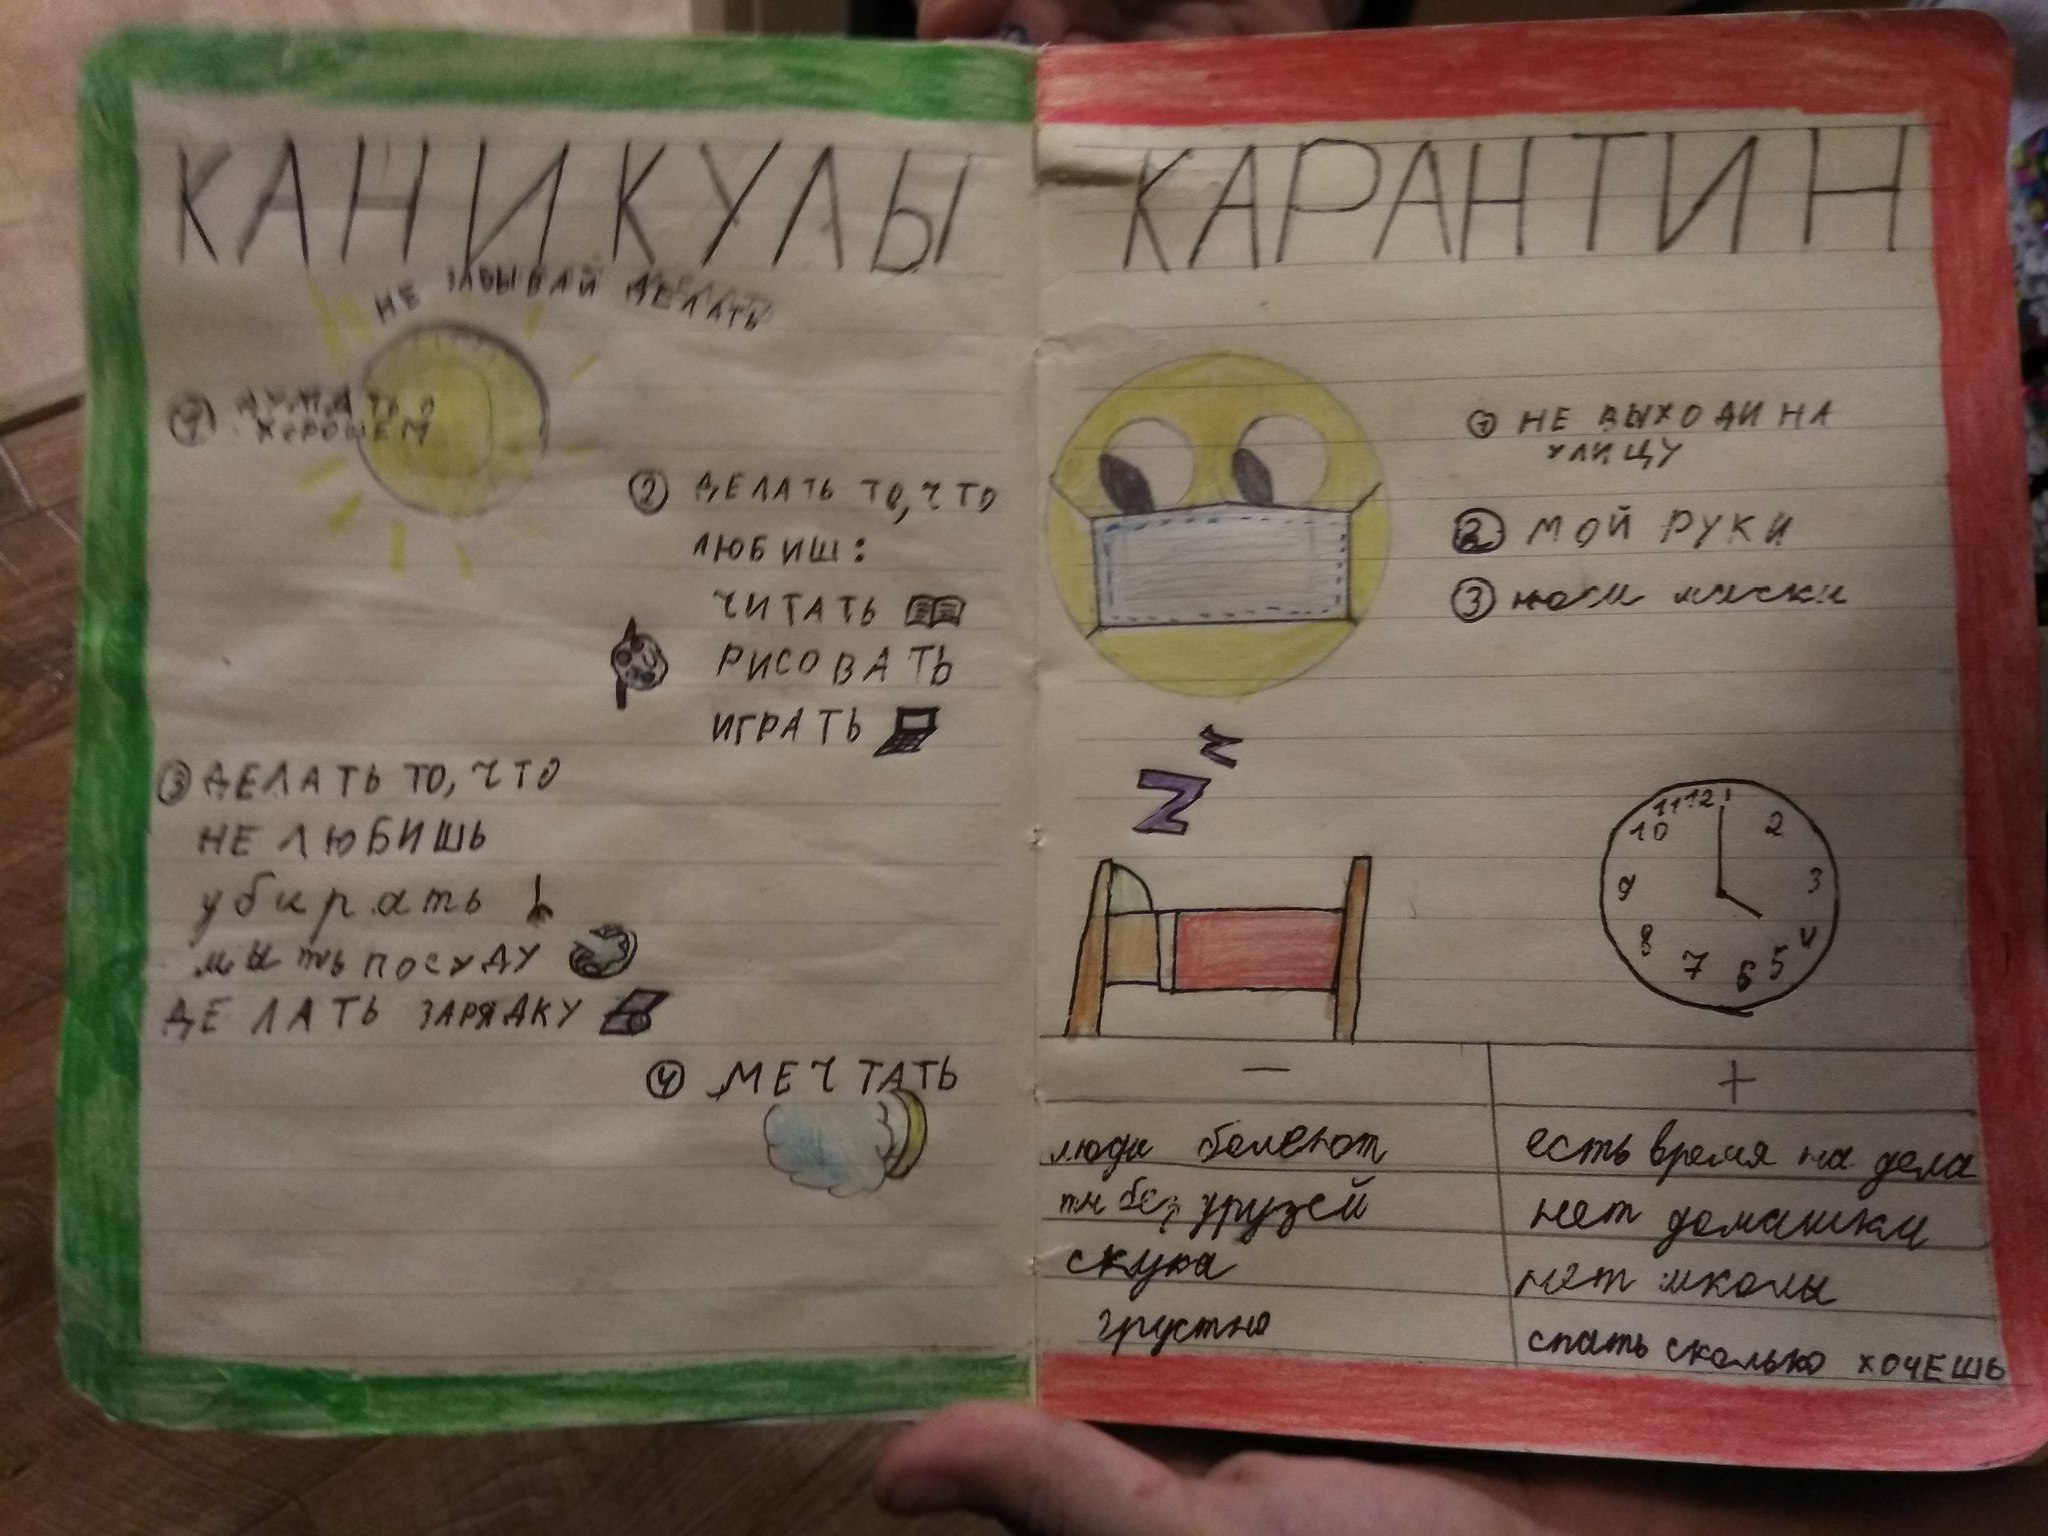 КАНИКУЛЫ
НЕ ЗАБЫВАЙ ДЕЛАТЬ
1 ДУМАТЬ О
ХОРОШЕМ
2 ДЕЛАТЬ ТО, ЧТО
ЛЮБИШ:
ЧИТАТЬ
РИСОВАТЬ
ИГРАТЬ
3 ДЕЛАТЬ ТО, ЧТО
НЕ ЛЮБИШЬ
убирать
мыть посуду
ДЕЛАТЬ ЗАРЯДКУ
4 МЕЧТАТЬ
КАРАНТИН
1 НЕ ВЫХОДИ НА
УЛИЦУ
2 МОЙ РУКИ
3 носи маски
Z z
11 12 1
10 2
9 3
8 4
7 6 5
— +
люди болеют
ты без друзей
скука
грустно
есть время на дела
нет домашки
нет школы
спать сколько ХОЧЕШЬ